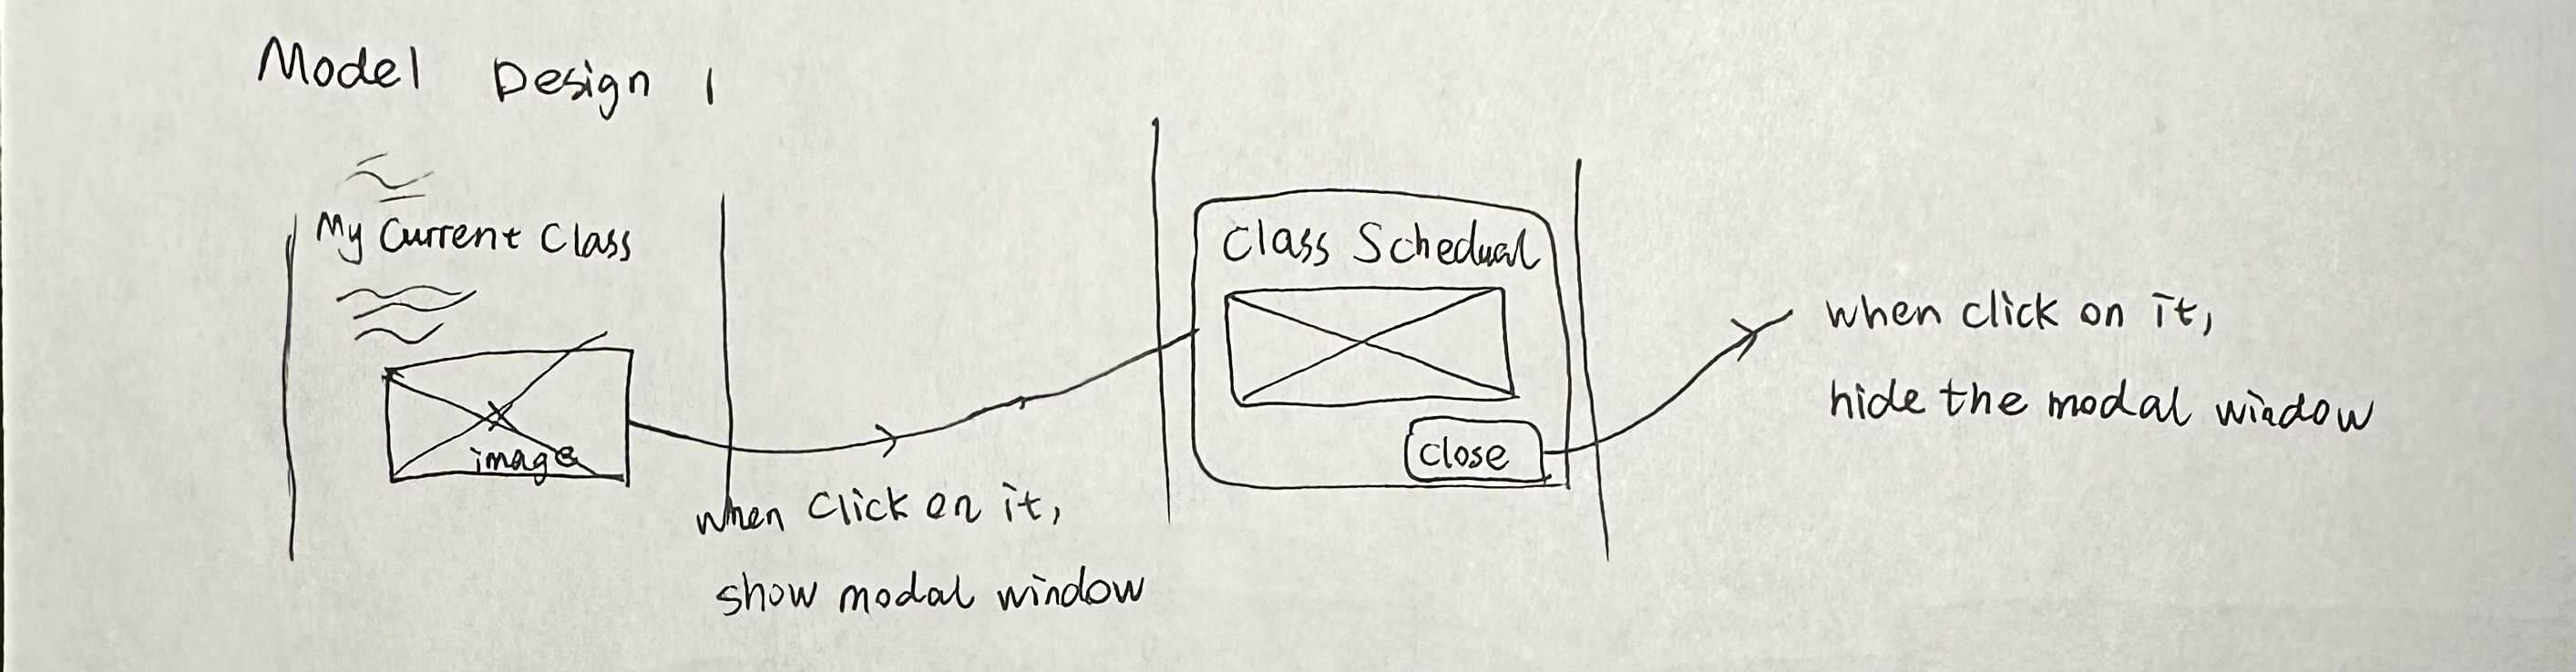 Model Design 1
My Current Class
image
when click on it,
show modal window
Class Schedual
close
when click on it,
hide the modal window